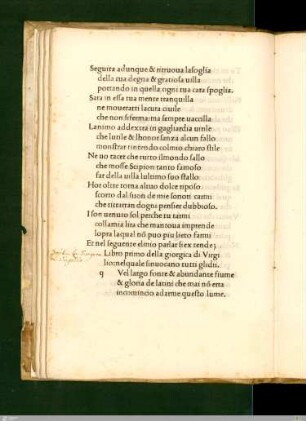 Seguita adunque & ritruoua la soglia
della tua degna & gratiosa uilla
portando in quella ogni tua cara spoglia.
Sara in essa tua mente tranquilla
ne moueratti la cura ciuile
che non si ferma ma sempre uacilla
Lanimo addextra in gagliardia uirile
che lutile & lhonor senza alcun fallo
monstrar tintendo col mio chiaro stile
Ne uo tacer che tutto il mondo sallo
che mosse Scipion tanto famoso
far della uilla lultimo suo stallo
Hor oltre torna al tuo dolce riposo
scorto dal suon de mie sonori canti
che ti trarran dogni pensier dubbioso.
I son uenuto sol perche tu tanti
colla mia lira che mantoua imprende
sopra laqual no può piu lieto farmi
Et nel seguente elmio parlar siextende;
Libro primo della giorgica di Virgi
lio: nel quale sinuocano tutti glidii.
q Vel largo fonte & abundante fiume
& gloria de latini che mai nō erra
incomincio a darme questo lume.